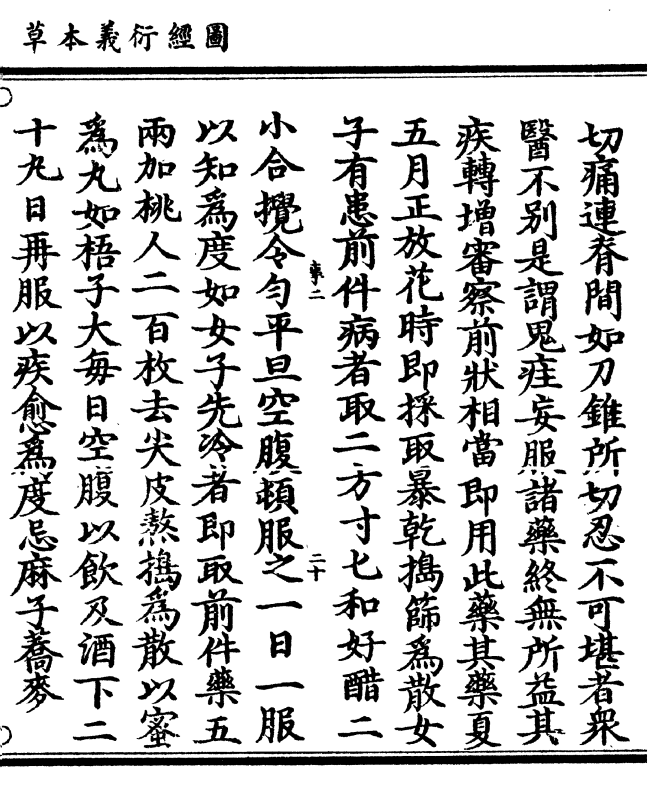 圖經衍義本草
切痛連脊間如刀錐所切忍不可堪者衆
醫不别是謂鬼疰妄服諸藥終無所益其
疾轉增審察前狀相當即用此藥其藥夏
五月正放花時即採取暴乾擣篩爲散女
子有患前件病者取二方寸匕和好醋二
小合攪令勻平旦空腹頓服之一日一服
以知爲度如女子先冷者即取前件藥五
兩加桃人二百枚去尖皮熬擣爲散以蜜
爲丸如梧子大每日空腹以飲及酒下二
十丸日再服以疾愈爲度忌麻子蕎麥
二十